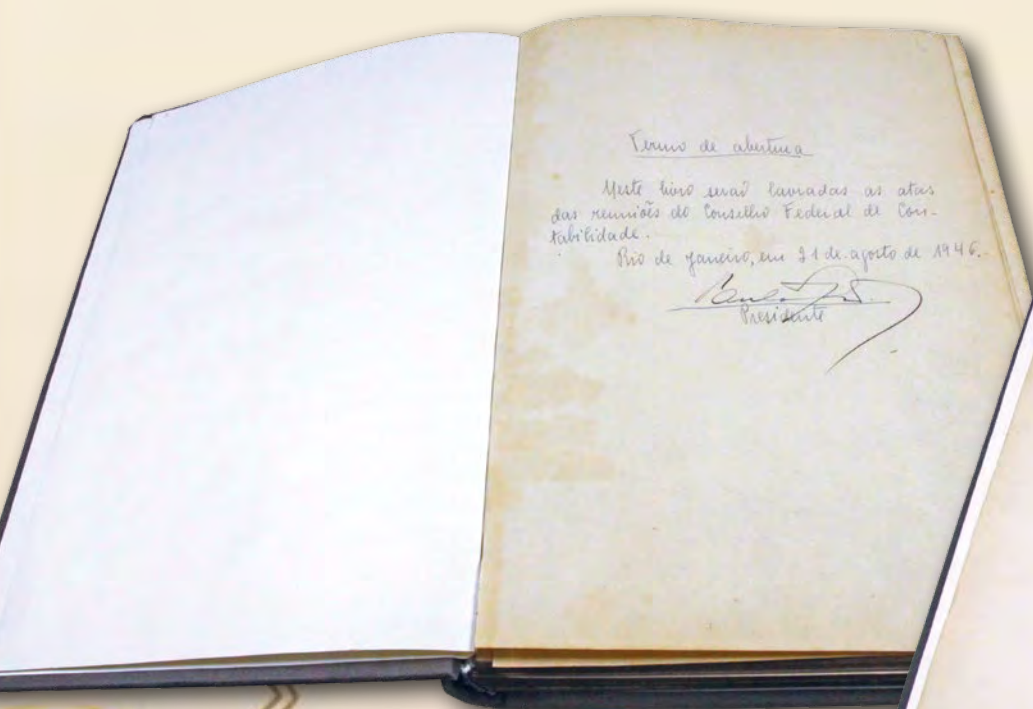 Termo de abertura
Neste livro serão lavradas as atas
das reuniões do Conselho Federal de Con-
tabilidade.
Rio de Janeiro, em 21 de agosto de 1946.
Presidente